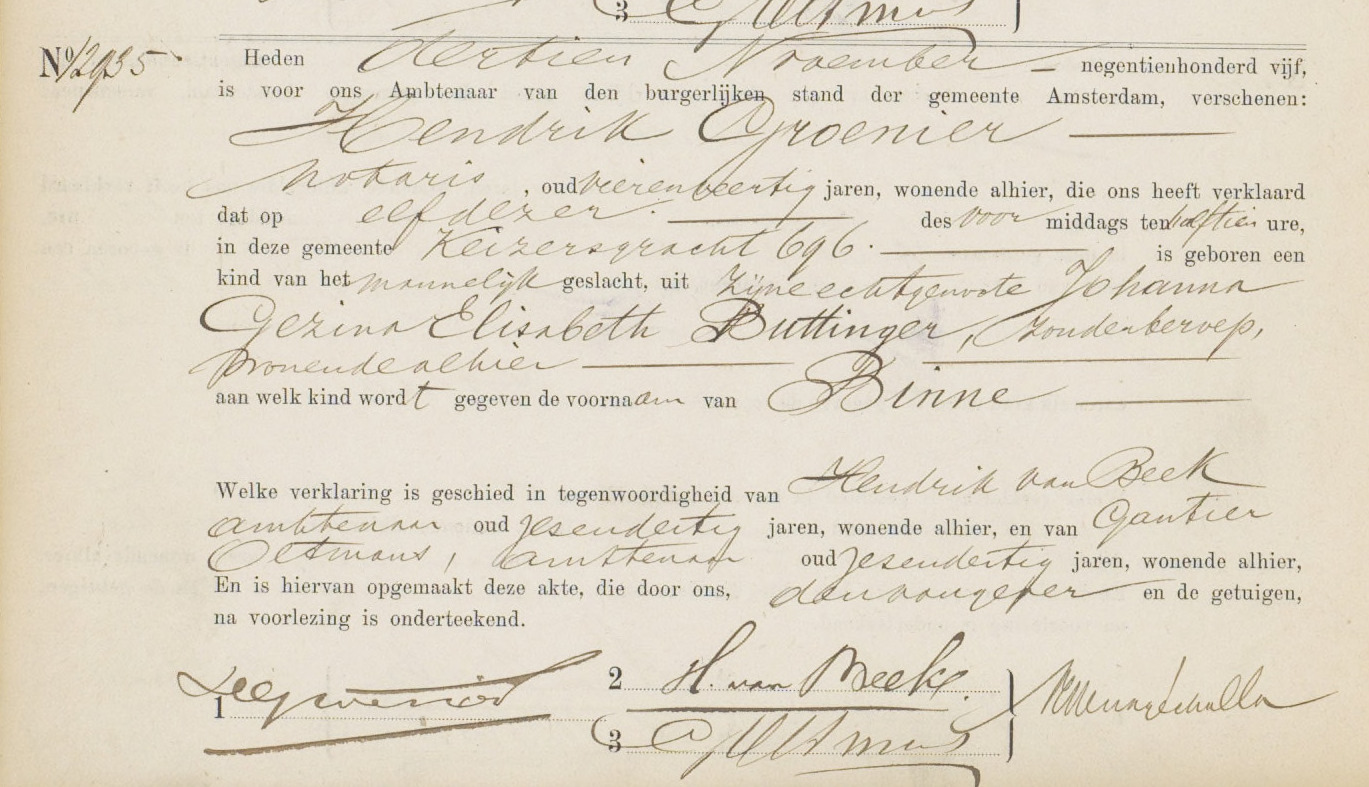 3
No 12935
Heden dertien November — negentienhonderd vijf,
is voor ons Ambtenaar van den burgerlijken stand der gemeente Amsterdam, verschenen:
Hendrik Groenier
notaris, oud vierenveertig jaren, wonende alhier, die ons heeft verklaard
dat op elf dezer. des voor middags ten half tien ure,
in deze gemeente Keizersgracht 696. is geboren een
kind van het mannelijk geslacht, uit zijne echtgenoote Johanna
Gezina Elisabeth Buttinger, zonder beroep,
wonende alhier
aan welk kind wordt gegeven de voornaam van Binne
Welke verklaring is geschied in tegenwoordigheid van Hendrik van Beek
ambtenaar oud zesendertig jaren, wonende alhier, en van Gautier
Oltmans, ambtenaar oud zesendertig jaren, wonende alhier,
En is hiervan opgemaakt deze akte, die door ons, den aangever en de getuigen,
na voorlezing is onderteekend.
1 2 H. van Beek.
3 G Oltmans